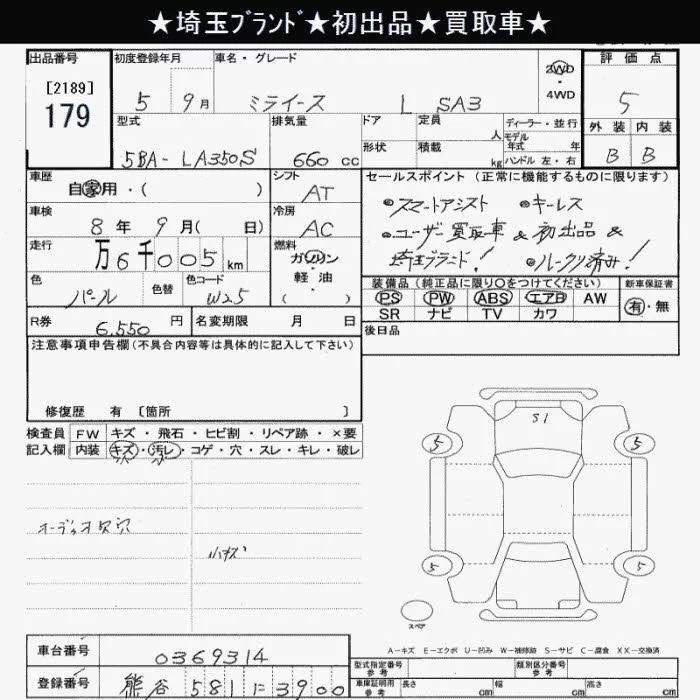 ★埼玉ブランド★初出品★買取車★
出品番号 初度登録年月 車名・グレード 評価点
[2189]
179
5 9月 ミライース L SA3 2WD・4WD 5
型式 排気量 ドア 定員 人 ディーラー・並行 外装 内装
モデル年式 年
5BA-LA350S 660cc 形状 積載 kg ハンドル 左・右 B B
車歴 シフト セールスポイント (正常に機能するものに限ります)
自家用・( ) AT
●スマートアシスト ●キーレス
車検 冷房
8年 9月( 日) AC
●ユーザー買取車&初出品&
走行 燃料
万6千005km ガソリン・軽油( )
埼玉ブランド! ●ルークリ済み!
色 色替 色コード
パール W25
装備品(純正品に限り○をつけてください) 新車保証書
PS PW ABS エアB AW 有・無
SR ナビ TV カワ
R券 6,550円 名変期限 月 日
後日品
注意事項申告欄(不具合内容等は具体的に記入して下さい)
修復歴 有 [箇所 ]
検査員 FW キズ・飛石・ヒビ割・リペア跡・×要
記入欄 内装 キズ・汚レ・コゲ・穴・スレ・キレ・破レ
S1
5 5
オーディオ欠穴
小キズ
5 5
スペア
A-キズ E-エクボ U-凹み W-補修跡 S-サビ C-腐食 XX-交換済
車台番号 0369314
型式指定番号 参考 類別区分番号 参考
登録番号 熊谷 581 に 3900
車庫証明用 参考 長さ cm 幅 cm 高さ cm